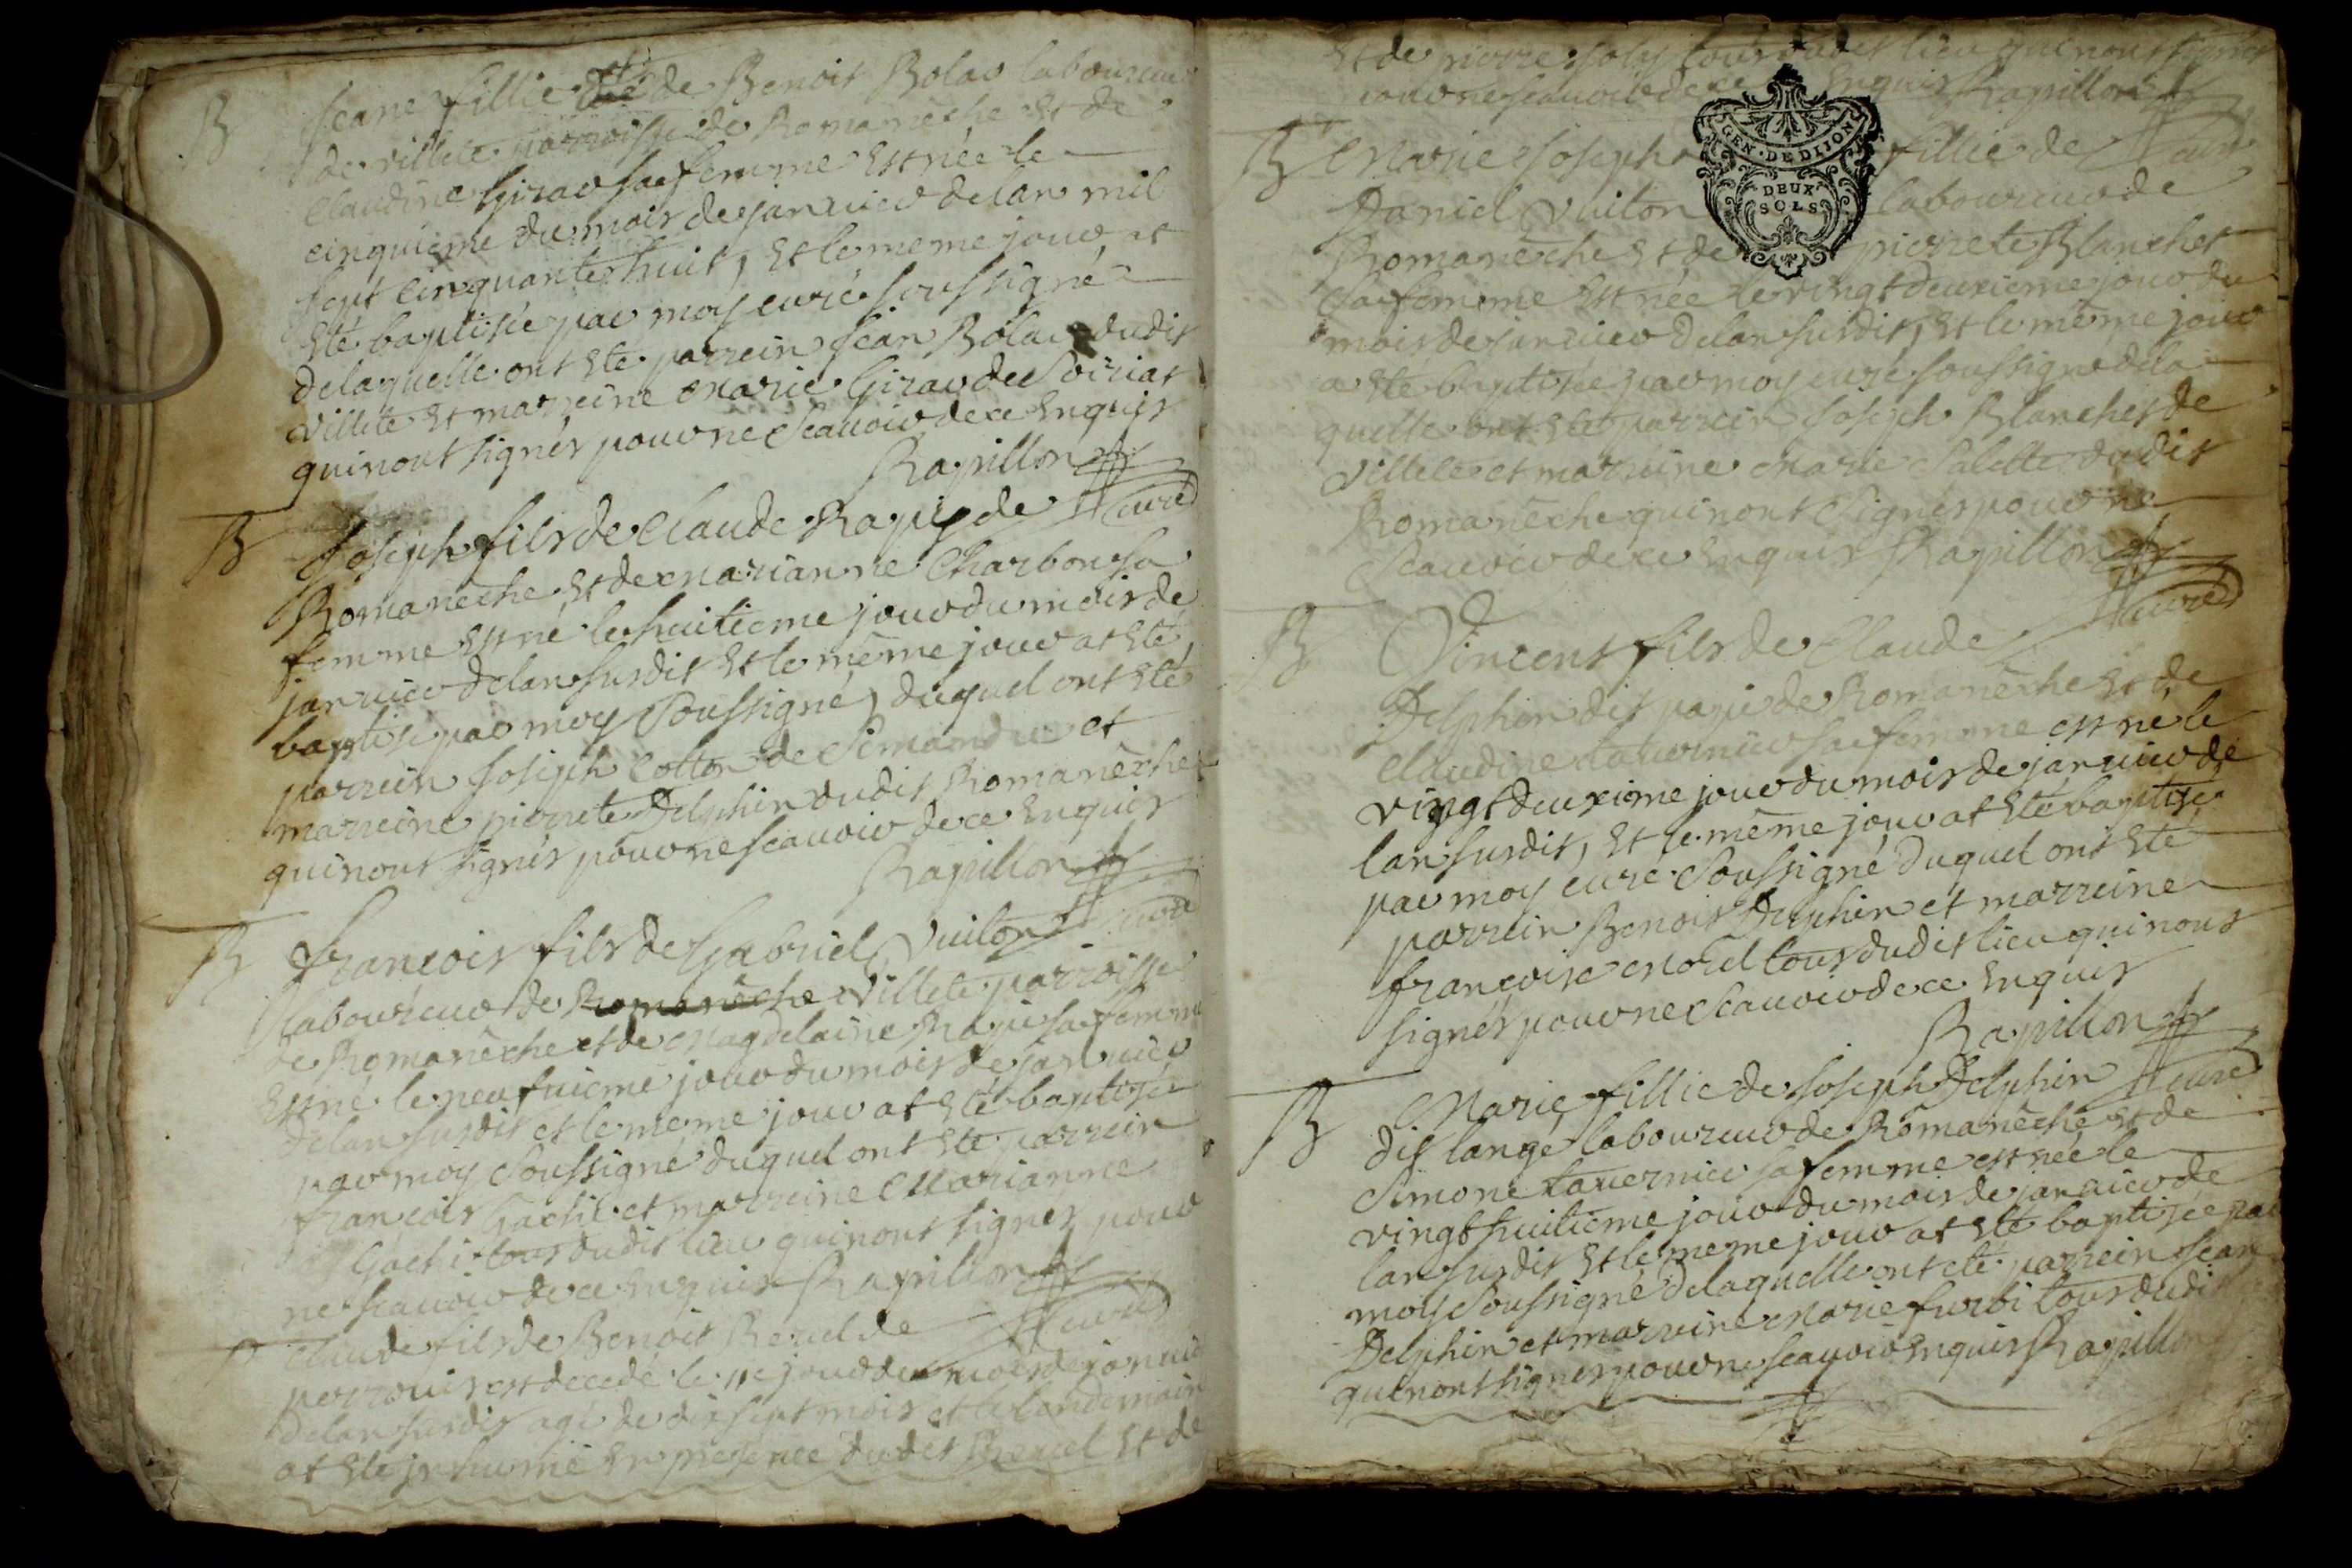 B Jeane fillie de Benoit Bolar laboureur
de villete parroisse de Romanêche et de
Claudine Girar sa femme est née le
cinquième du mois de janvier de lan mil
sept cinquante huit, et le meme jour at
été baptisée par moy curé soussigné
delaquelle ont été parrein Jean Bolar dudit
villete et marreine Marie Girar de Soiriat
qui nont signés pour ne scavoir de ce enquis
Rapillon
curé
B Joseph fils de Claude Rapy de
Romanêche et de Marianne Charbon sa
femme est né le huitieme jour du mois de
janvier delan susdit et le même jour at été
baptisé par moy soussigné, duquel ont été
parrein Joseph Cotton de Simandre et
marreine pierrete Delphin dudit Romanêche
qui nont signés pour ne scavoir de ce enquis
Rapillon
curé
B François fils de Gabriel Vuilon
laboureur de Romanêche villete parroisse
de Romanêche et de Magdelaine Rapi sa femme
est né le neufuieme jour du mois de janvier
delan susdit et le meme jour at été baptisé
par moy soussigné duquel ont été parrein
françois Gachi et marreine Marianne
Gachi tous dudit lieu qui nont signés pour
ne scavoir de ce enquis Rapillon
curé
Claude fils de Benoit Revel de
perrouis est decedé le 11e jour du mois de janvier
delan susdit agé de dix sept mois et le landemain
at été inhumé en presence dudit Revel et de
et de pierre Joly tous dudit lieu qui nont signés
pour ne scavoir de ce enquis Rapillon
curé
GEN·DE DIJON
DEUX
SOLS
B Marie Joseph fillie de
Daniel Vuilon laboureur de
Romanêche et de pierrete Blanchet
sa femme est née le vingt deuxieme jour du
mois de janvier delan susdit, et le même jour
a été baptisée par moy curé soussigné dela
quelle ont été parrein Joseph Blanchet de
villete et marreine Marie Salette dudit
Romanêche qui nont signés pour ne
scavoir de ce enquis Rapillon
curé
B Vincent fils de Claude
Delphin dit papi de Romanêche et de
Claudine tavernier sa femme est né le
vingt deuxieme jour du mois de janvier de
lan susdit, et le même jour at été baptisé
par moy curé soussigné duquel ont été
parrein Benoit Delphin et marreine
françoise Morel tous dudit lieu qui nont
signés pour ne scavoir de ce enquis
Rapillon
curé
B Marie fillie de Joseph Delphin
dit langé laboureur de Romanêche et de
Simone tavernier sa femme est née le
vingt huitieme jour du mois de janvier de
lan susdit et le meme jour at été baptisée par
moy soussigné delaquelle ont eté parrein Jean
Delphin et marreine Marie furbi tous dudit
qui nont signés pour ne scavoir enquis Rapillon